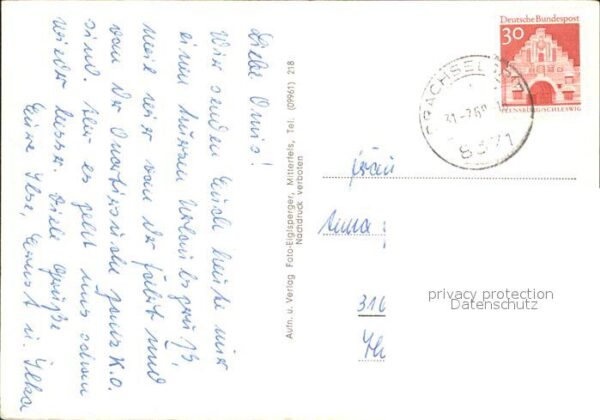 Liebe Omis!
Wir senden Euch heute nur
einen kurzen Urlaubsgruß,
weil wir von der Fahrt und
von der Quartiersuche ganz K.O.
sind. Hier es geht uns schon
wieder besser. Viele Grüße
Eure Ilse, Ernst u. Ilka
Aufn. u. Verlag Foto-Eiglsperger, Mitterfels, Tel. (09961) 218
Nachdruck verboten
Deutsche Bundespost
30
FLENSBURG/SCHLESWIG
DRACHSELSRIED
31-7.68
8371
Frau
Anna
316
privacy protection
Datenschutz